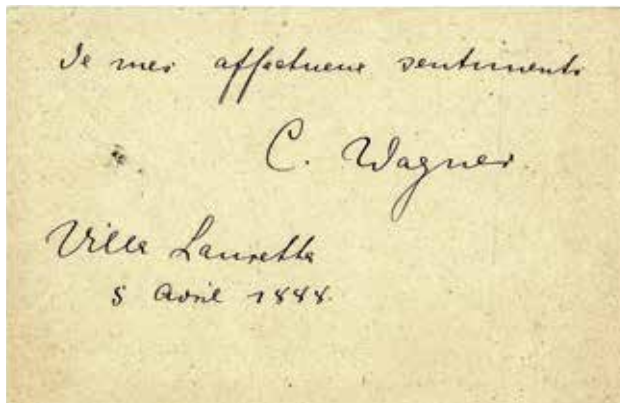 de mes affectueux sentiments
C. Wagner.
Villa Lauretta
5 Avril 1888.